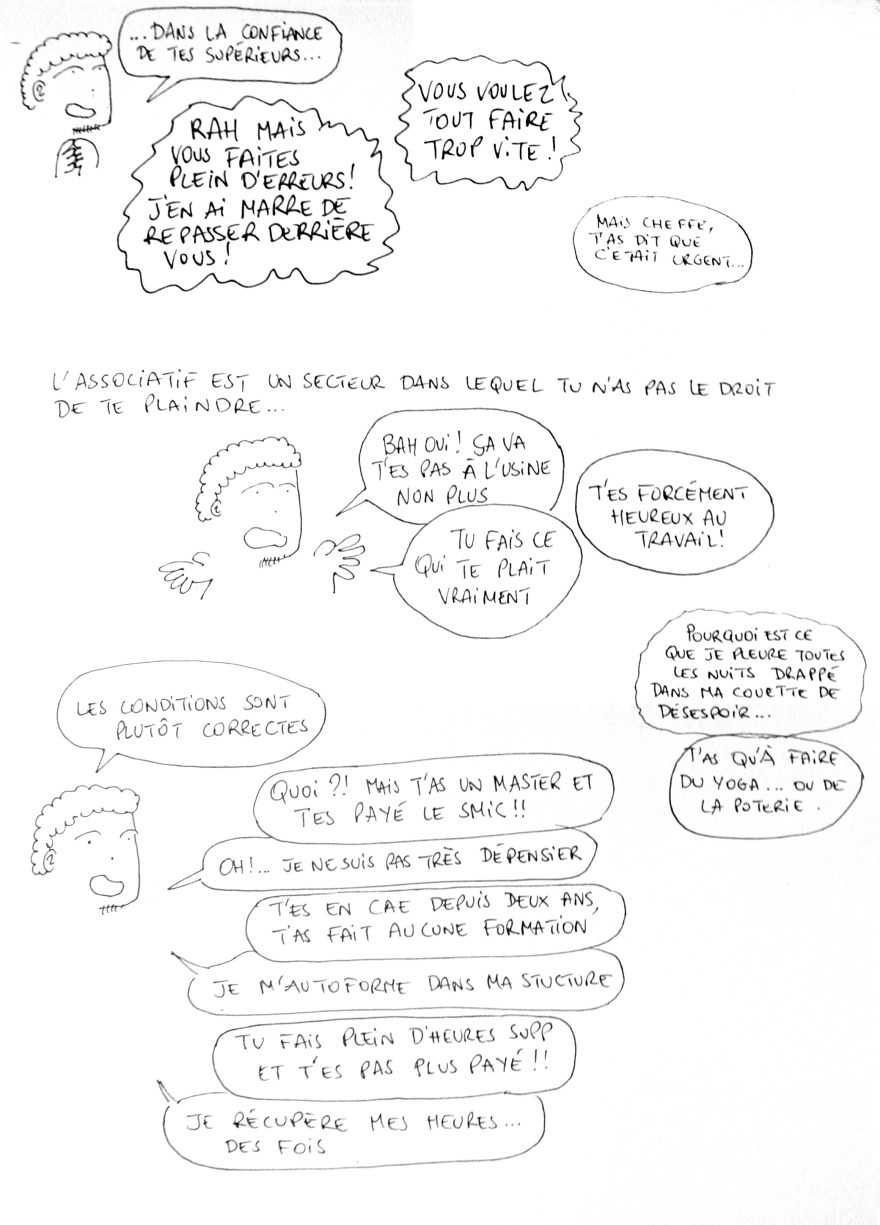 ...DANS LA CONFIANCE
DE TES SUPÉRIEURS...
RAH MAIS
VOUS FAITES
PLEIN D'ERREURS!
J'EN AI MARRE DE
REPASSER DERRIÈRE
VOUS!
VOUS VOULEZ
TOUT FAIRE
TROP VITE!
MAIS CHEFFE,
T'AS DIT QUE
C'ETAIT URGENT...
L'ASSOCIATIF EST UN SECTEUR DANS LEQUEL TU N'AS PAS LE DROIT
DE TE PLAINDRE...
BAH OUI! ÇA VA
T'ES PAS À L'USINE
NON PLUS
TU FAIS CE
QUI TE PLAIT
VRAIMENT
T'ES FORCÉMENT
HEUREUX AU
TRAVAIL!
POURQUOI EST CE
QUE JE PLEURE TOUTES
LES NUITS DRAPPÉ
DANS MA COUETTE DE
DÉSESPOIR...
T'AS QU'À FAIRE
DU YOGA... OU DE
LA POTERIE.
LES CONDITIONS SONT
PLUTÔT CORRECTES
QUOI?! MAIS T'AS UN MASTER ET
T'ES PAYÉ LE SMIC!!
OH!... JE NE SUIS PAS TRÈS DÉPENSIER
T'ES EN CAE DEPUIS DEUX ANS,
T'AS FAIT AUCUNE FORMATION
JE M'AUTOFORME DANS MA STUCTURE
TU FAIS PLEIN D'HEURES SUPP
ET T'ES PAS PLUS PAYÉ!!
JE RÉCUPÈRE MES HEURES...
DES FOIS